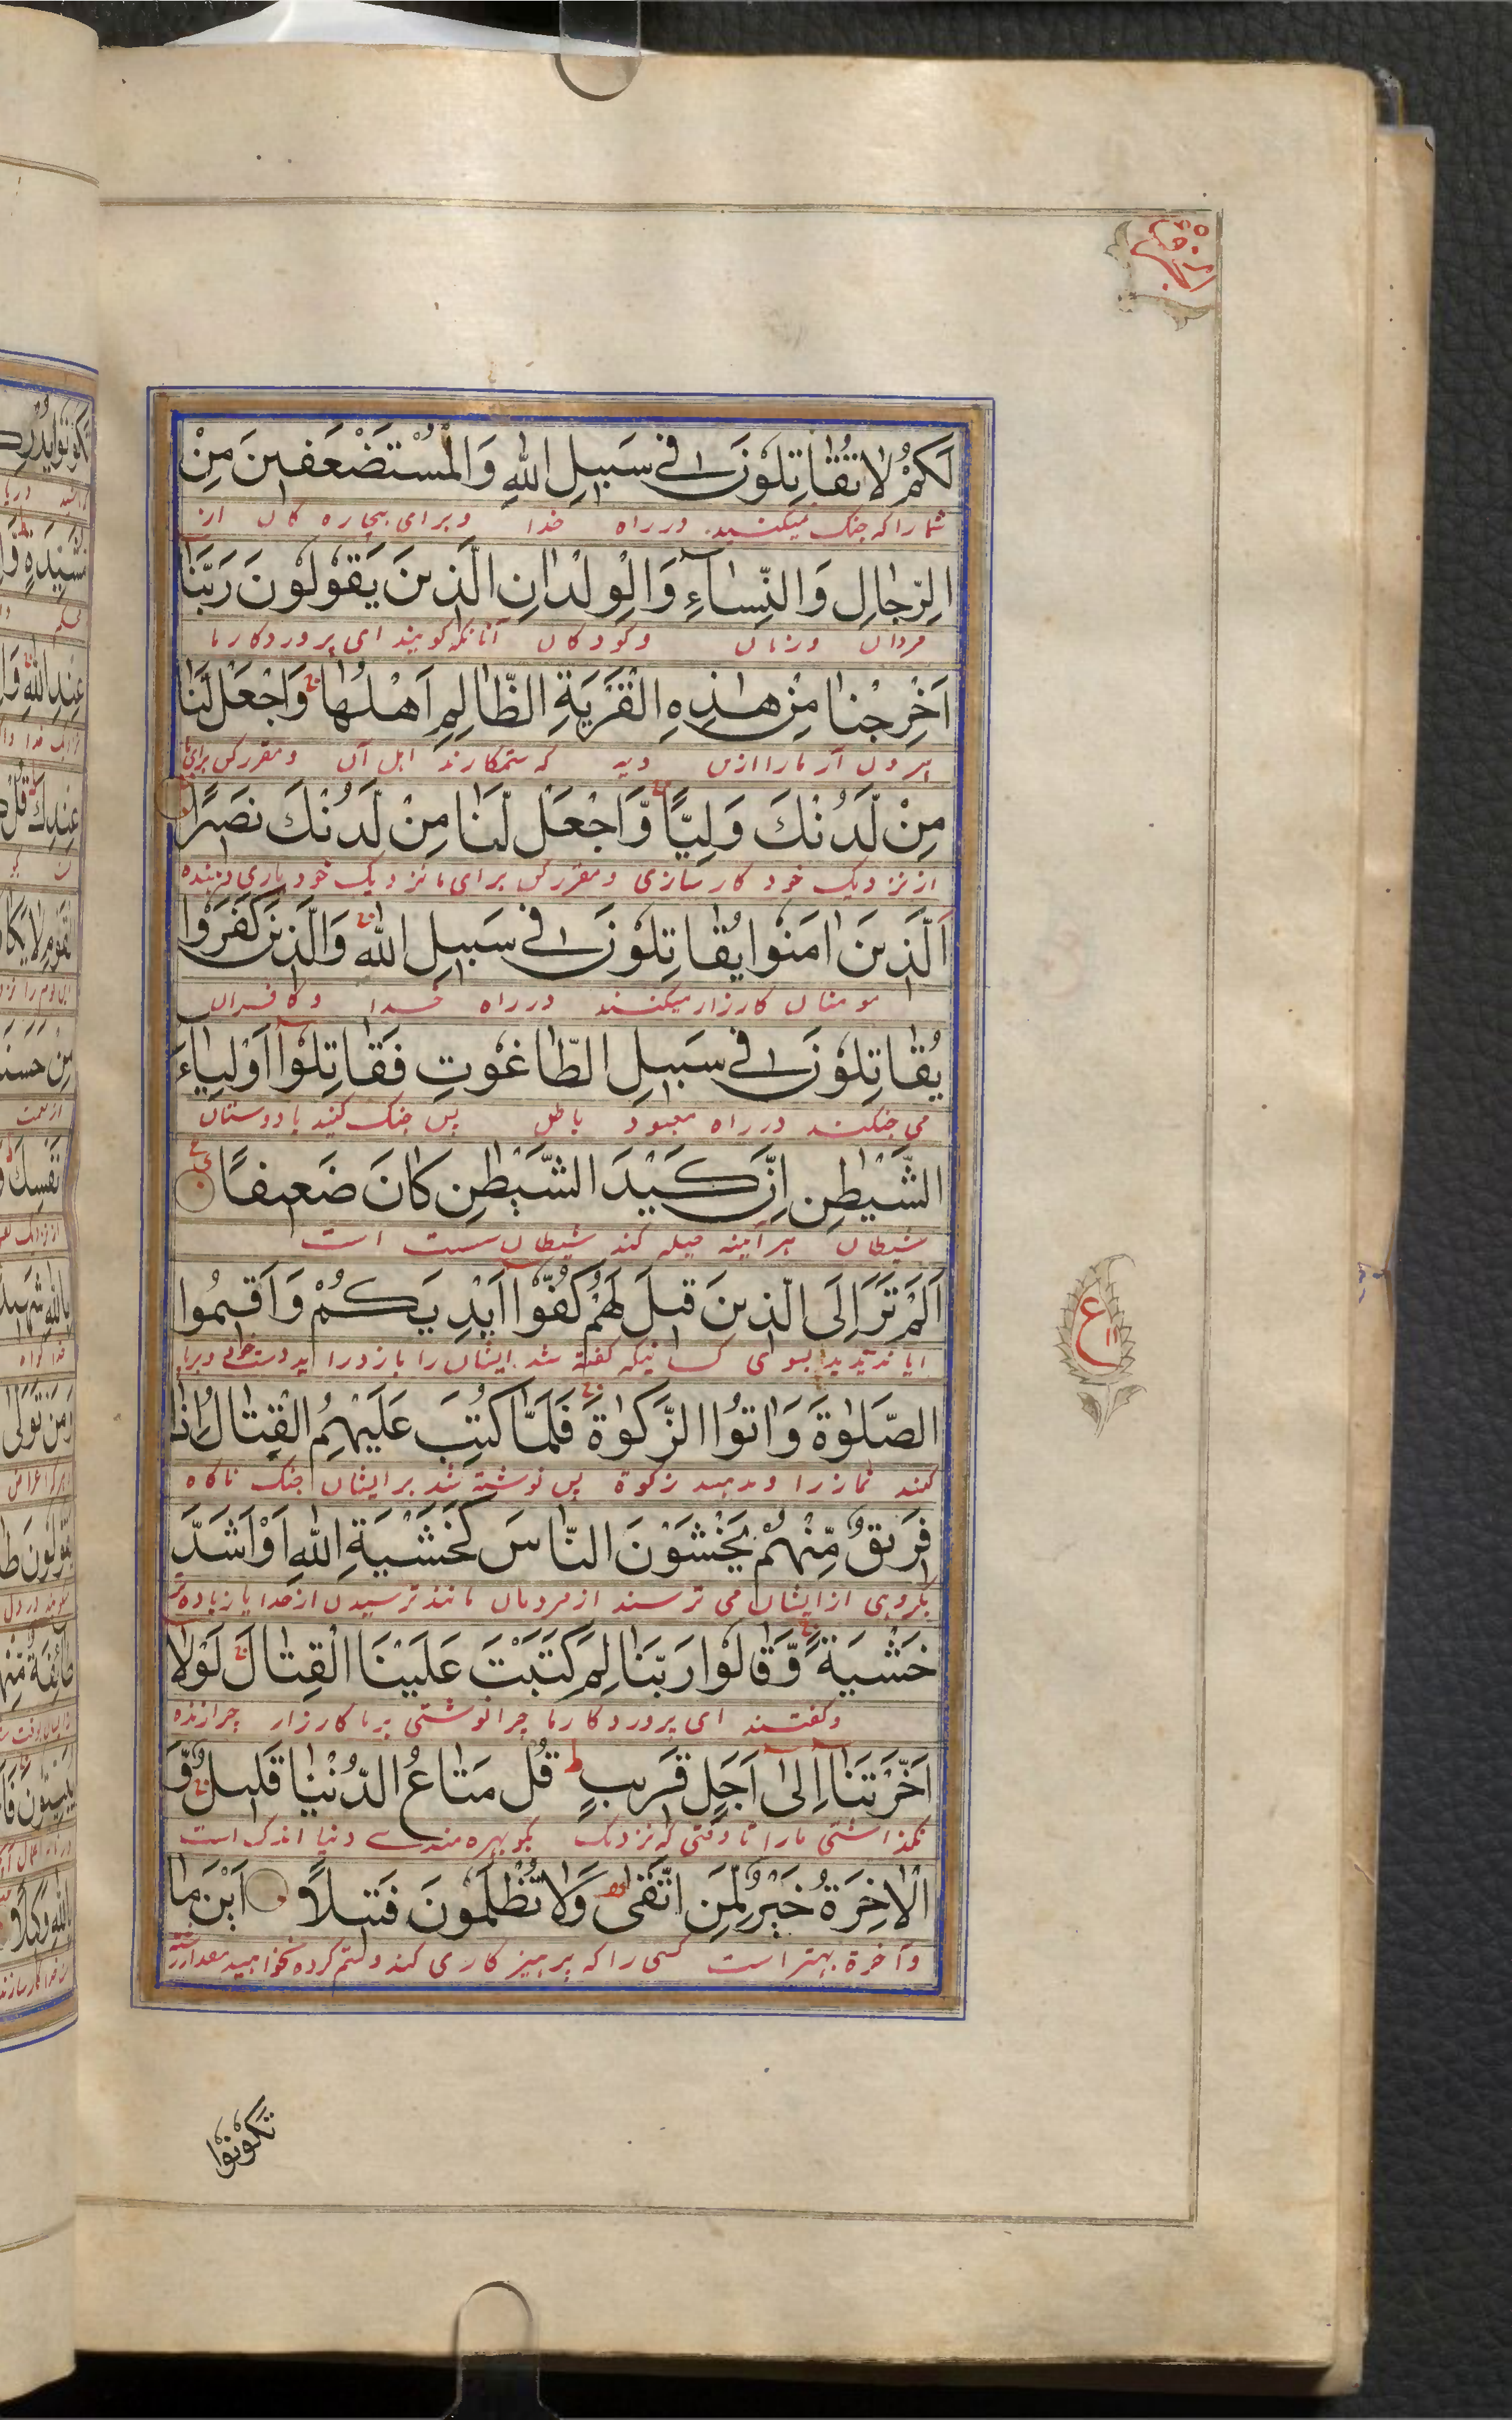 لَكُمْ لَا تُقَاتِلُونَ فِي سَبِيلِ اللهِ وَالْمُسْتَضْعَفِينَ مِنَ
شما را که جنک نمیکنید در راه خدا و برای بیچاره کان از
الرِّجَالِ وَالنِّسَآءِ وَالْوِلْدَانِ الَّذِينَ يَقُولُونَ رَبَّنَا
مردان و زنان و کودکان آنانکه کویند ای پروردکار ما
اَخْرِجْنَا مِنْ هٰذِهِ الْقَرْيَةِ الظَّالِمِ اَهْلُهَا وَاجْعَلْ لَنَا
بیرون آر ما را ازین دیه که ستمکارند اهل آن و مقرر کن برای ما
مِنْ لَدُنْكَ وَلِيًّا وَّاجْعَلْ لَنَا مِنْ لَدُنْكَ نَصِيرًا
از نزدیک خود کارسازی و مقرر کن برای ما نزدیک خود یاری دهنده
اَلَّذِينَ اٰمَنُوا يُقَاتِلُونَ فِي سَبِيلِ اللهِ وَالَّذِينَ كَفَرُوا
مومنان کارزار میکنند در راه خدا و کافران
يُقَاتِلُونَ فِي سَبِيلِ الطَّاغُوتِ فَقَاتِلُوٓا اَوْلِيَاءَ
می جنکند در راه معبود باطل پس جنک کنید با دوستان
الشَّيْطٰنِ اِنَّ كَيْدَ الشَّيْطٰنِ كَانَ ضَعِيفًا
شیطان هر آینه حیله کند شیطان سست است
اَلَمْ تَرَ اِلَى الَّذِينَ قِيلَ لَهُمْ كُفُّوٓا اَيْدِيَكُمْ وَاَقِيمُوا
ایا ندیدید بسوی کسانیکه کفته شد ایشان را باز دارید دستهای و برپا
الصَّلٰوةَ وَاٰتُوا الزَّكٰوةَ فَلَمَّا كُتِبَ عَلَيْهِمُ الْقِتَالُ اِذَا
کنید نماز را و بدهید زکوة پس نوشته شد بر ایشان جنک ناکاه
فَرِيقٌ مِّنْهُمْ يَخْشَوْنَ النَّاسَ كَخَشْيَةِ اللهِ اَوْ اَشَدَّ
کروهی از ایشان می ترسند از مردمان مانند ترسیدن از خدا یا زیاده تر
خَشْيَةً وَّقَالُوا رَبَّنَا لِمَ كَتَبْتَ عَلَيْنَا الْقِتَالَ لَوْلَا
و کفتند ای پروردکار ما چرا نوشتی بر ما کارزار چرا زنده
اَخَّرْتَنَآ اِلٰىٓ اَجَلٍ قَرِيبٍ قُلْ مَتَاعُ الدُّنْيَا قَلِيلٌ وَّ
نکذاشتی ما را تا وقتی که نزدیک بکو بهره مندی دنیا اندک است
الْاٰخِرَةُ خَيْرٌ لِّمَنِ اتَّقٰى وَلَا تُظْلَمُونَ فَتِيلًا اَيْنَ مَا
و آخرة بهتر است کسی را که پرهیز کاری کند و ستم کرده نخواهید
ع ١١
تَكُونُوا